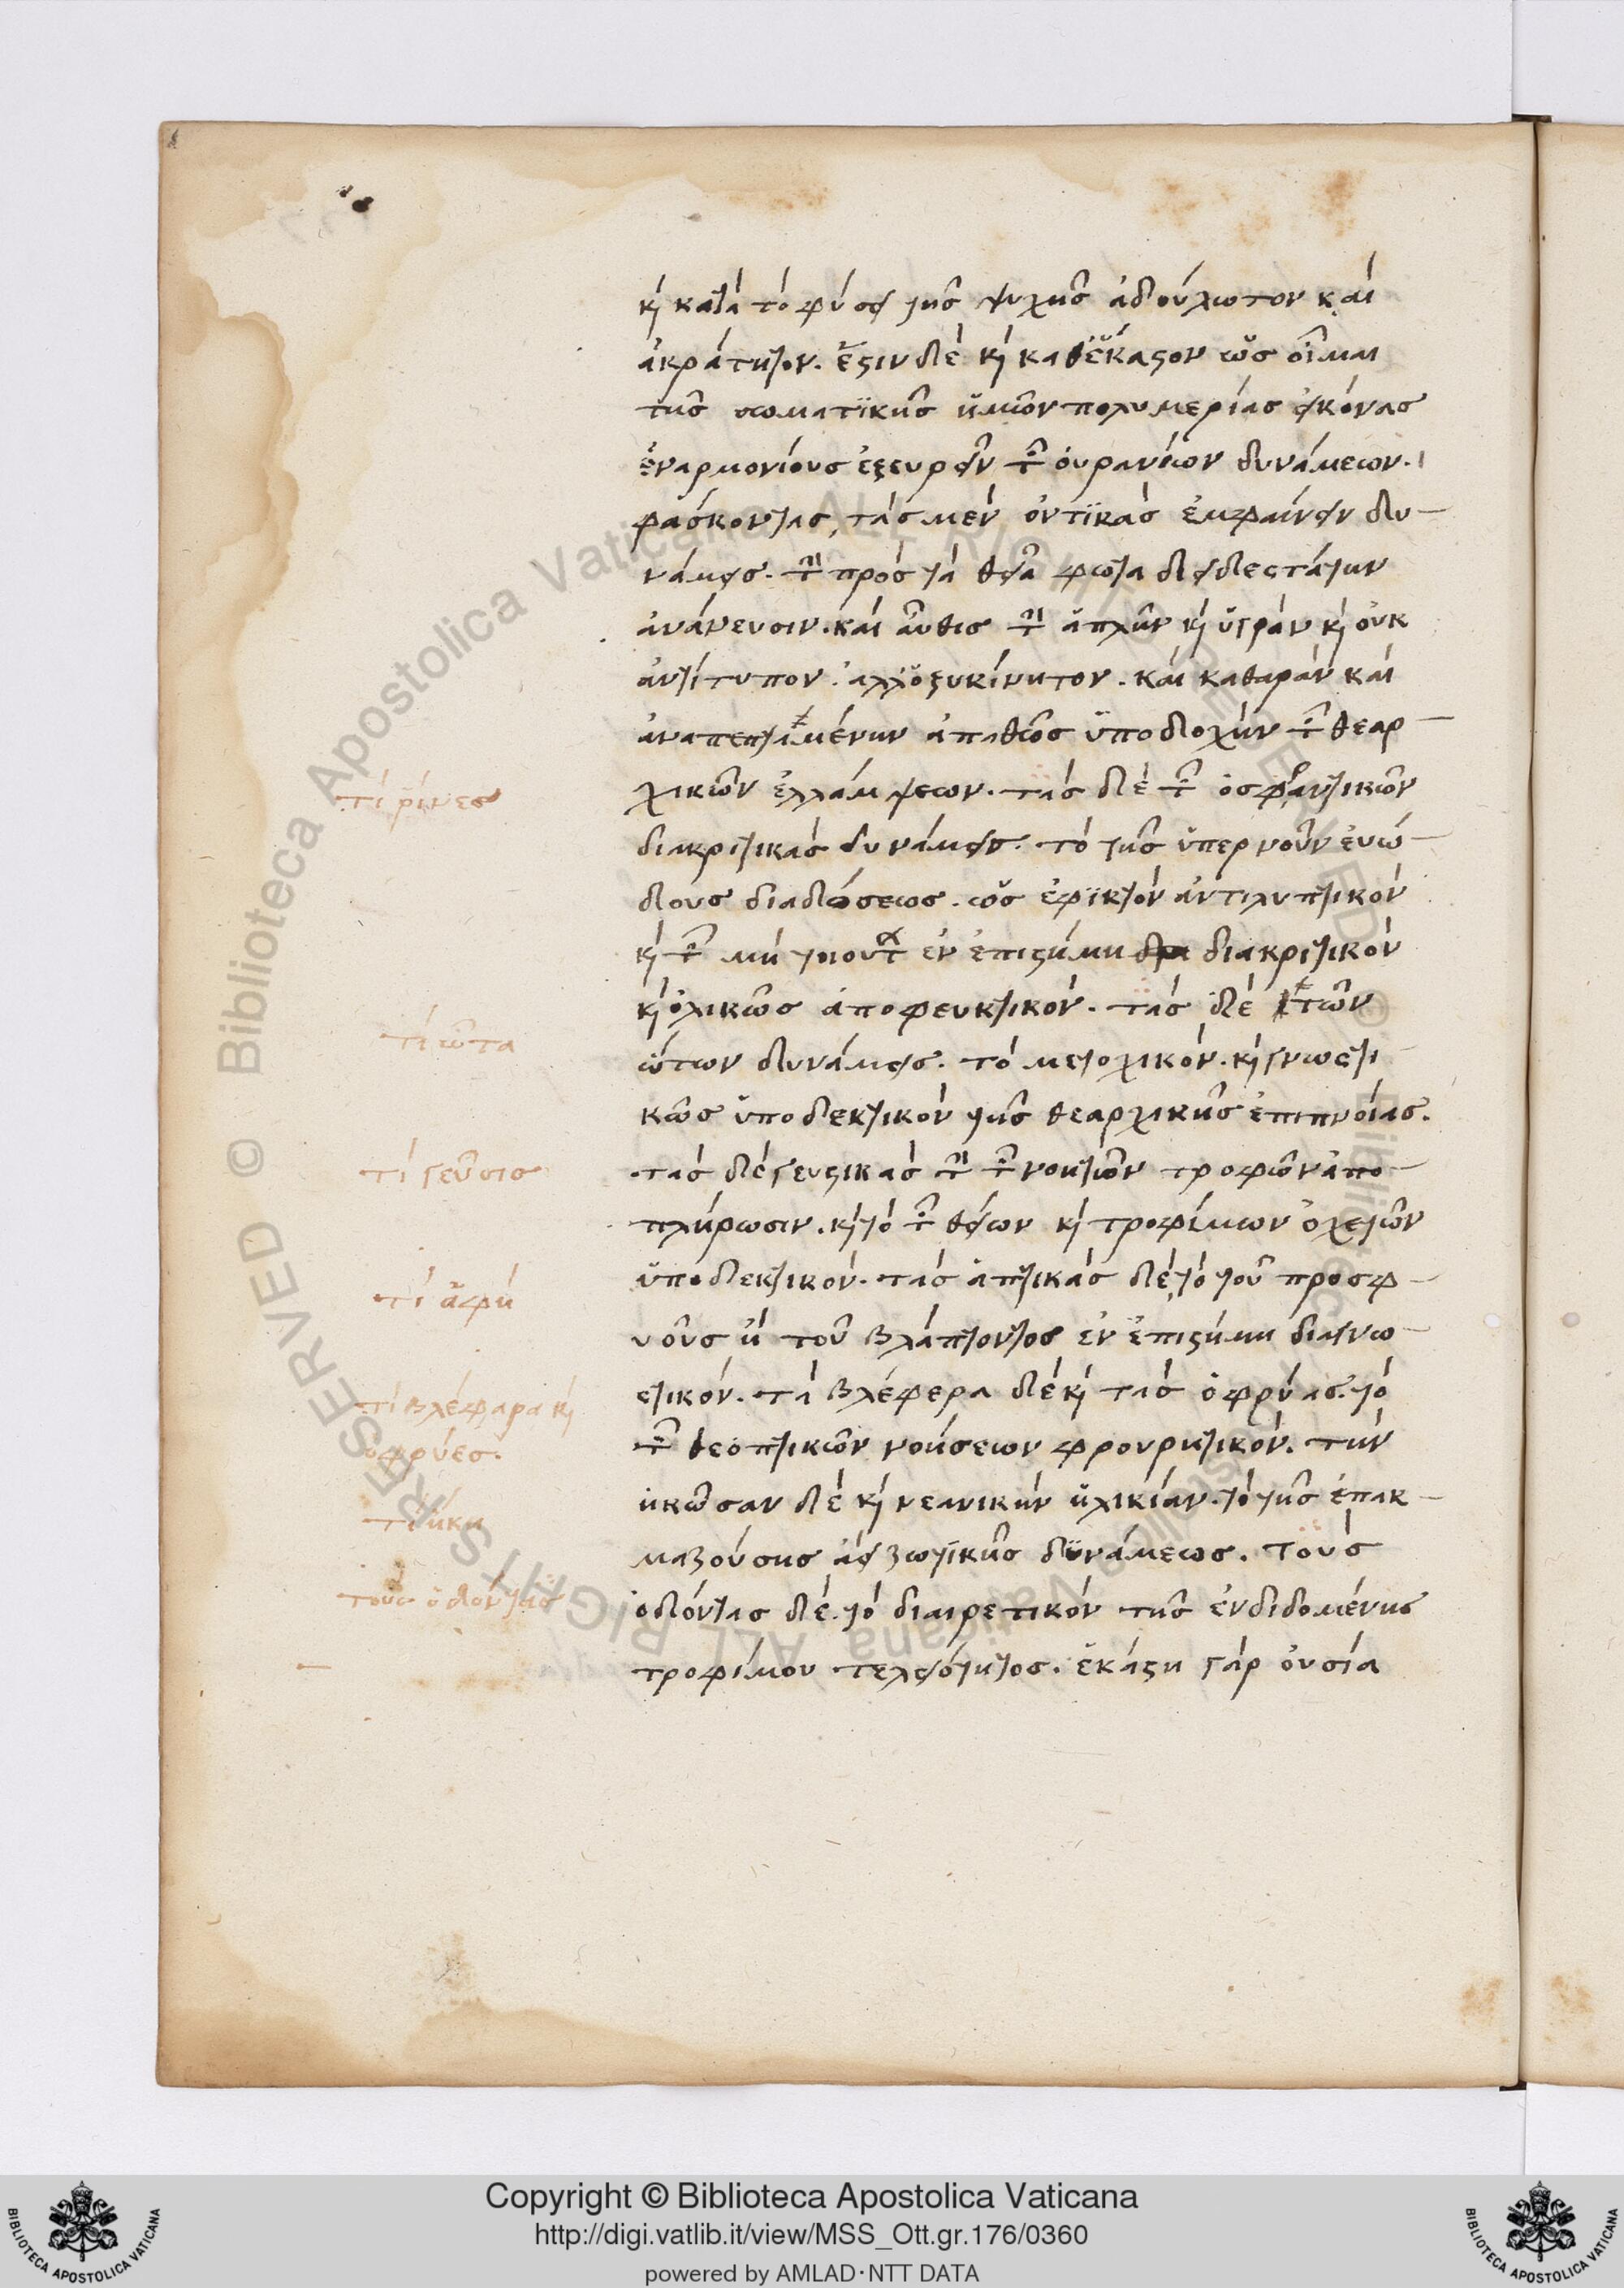 κὶ κατὰ τὸ φύσει τῆς ψυχῆς ἀδούλωτον καὶ
ἀκράτητον. ἔστιν δὲ κὶ καθέκαστον ὡς οἶμαι
τῆς σωματϊκῆς ἡμῶν πολυμερίας εἰκόνας
ἐναρμονίους ἐξευρεῖν τῶν οὐρανίων δυνάμεων.
φάσκοντας, τὰς μὲν ὀπτϊκὰς ἐμφαίνειν δυ-
νάμεις. τὴν πρὸς τὰ θεῖα φῶτα διειδεστάτην
ἀνάνευσιν. καὶ αὖθις τὴν ἁπλὴν κὶ ὑγρὰν κὶ οὐκ
ἀντίτυπον. ἀλλ' ὀξυκίνητον. καὶ καθαρὰν καὶ
ἀναπεπταμένην ἀπαθῶς ὑποδοχὴν τῶν θεαρ-
χικῶν ἐλλάμψεων. τὰς δὲ τῶν ὀσφραντικῶν
τί ῥίνες
διακριτικὰς δυνάμεις. τὸ τῆς ὑπερ νοῦν εὐώ-
δους διαδόσεως. ὡς ἐφϊκτὸν ἀντιληπτικὸν
κὶ τῶν μὴ τοιούτων ἐν ἐπιστήμη διακριτικὸν
κὶ ὁλικῶς ἀποφευκτικὸν. τὰς δὲ τῶν
τί ὦτα
ὤτων δυνάμεις. τὸ μετοχικὸν. κὶ γνωστι
κῶς ὑποδεκτικὸν τῆς θεαρχικῆς ἐπιπνοίας.
τὰς δὲ γευστικὰς τὴν τῶν νοητῶν τροφῶν ἀπο-
τί γεῦσις
πλήρωσιν. κὶ τὸ τῶν θείων κὶ τροφίμων ὀχετῶν
ὑποδεκτικὸν. τὰς ἁπτικὰς δὲ, τὸ τοῦ προσφ-
τί ἁφὴ
υοῦς ἢ τοῦ βλάπτοντος ἐν ἐπιστήμη διαγνω-
στικόν. τὰ βλέφερα δὲ κὶ τὰς ὀφρύας. τὸ
τί βλέφαρα κὶ
ὀφρύες.
τῶν θεοπτικῶν νοήσεων φρουρητικόν. τὴν
ἡβῶσαν δὲ κὶ νεανικὴν ἡλικίαν. τὸ τῆς ἐπακ-
τί ἥβη
μαζούσης ἀεὶ ζωτϊκῆς δϋνάμεως. τοὺς
ὀδόντας δὲ. τὸ διαιρετικὸν τῆς ἐνδιδομένης
τοὺς ὀδόντας
τροφίμου τελειότητος. ἑκάστη γὰρ οὐσία
Copyright © Biblioteca Apostolica Vaticana
http://digi.vatlib.it/view/MSS_Ott.gr.176/0360
powered by AMLAD·NTT DATA
BIBLIOTECA APOSTOLICA VATICANA
BIBLIOTECA APOSTOLICA VATICANA